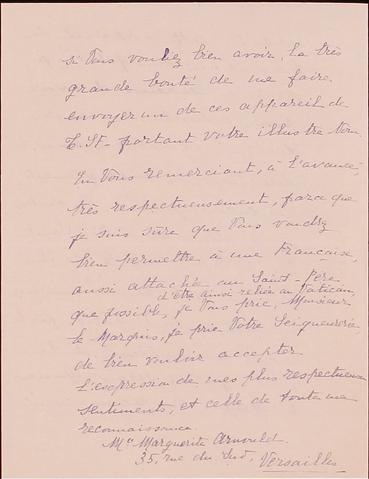 si Vous voulez bien avoir la très
grande bonté de me faire
envoyer un de ces appareil de
T. S. F. portant votre illustre Nom.
En Vous remerciant, à l'avance,
très respectueusement, parce que
je suis sûre que Vous voudrez
bien permettre à une Française,
aussi attachée au Saint-Père
d'être ainsi reliée au Vatican,
que possible, je Vous prie, Monsieur
le Marquis, je prie Votre Seigneurerie,
de bien vouloir accepter
l'expression de mes plus respectueux
sentiments, et celle de toute ma
reconnaissance.
Me Marguerite Arnould.
35, rue du Sud, Versailles